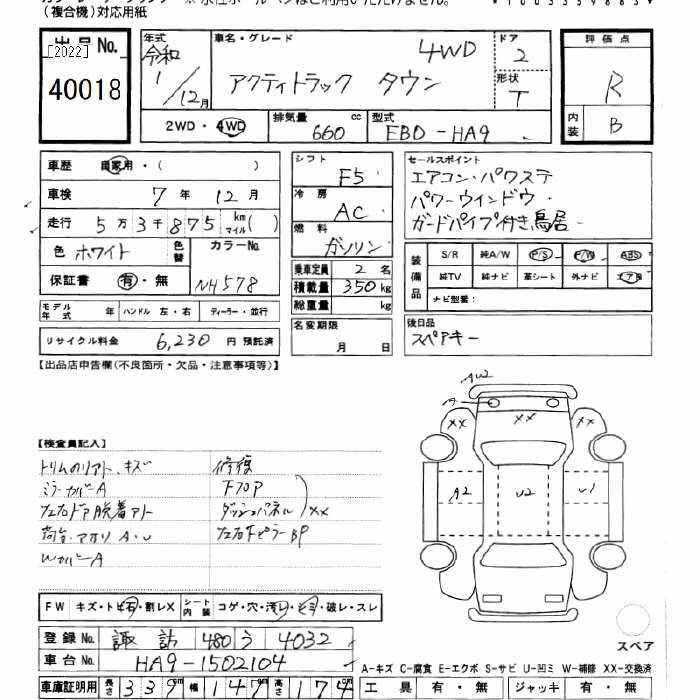 (複合機)対応用紙
出品No.
[2022]
40018
年式
令和
1/12月
車名・グレード
4WD
アクティトラック タウン
ドア
2
形状
T
評価点
R
内装
B
2WD・4WD
排気量 660 cc
型式 EBD-HA9
車歴 自家用・( )
車検 7年 12月
走行 5万3千875 km マイル( )
色 ホワイト
色替
カラーNo.
NH578
保証書 有・無
モデル年式 年 ハンドル 左・右 ディーラー・並行
リサイクル料金 6,230円 預託済
シフト F5
冷房 AC
燃料 ガソリン
乗車定員 2名
積載量 350 kg
総重量 kg
名変期限
月 日
セールスポイント
エアコン・パワステ
パワーウインドウ・
ガードパイプ付き鳥居
装備品
S/R 純A/W P/S P/W ABS
純TV 純ナビ 革シート 外ナビ エアB
ナビ型番:
後日品
スペアキー
【出品店申告欄(不良箇所・欠品・注意事項等)】
【検査員記入】
ミラーカバーA
左右ドア脱着アト
荷台・アオリ A・U
WカバーA
修復
ダッシュパネル XX
AW2
A
XX XX XX
A2 U2 U1
FW キズ・トビ石・割レX シート内装 コゲ・穴・汚レ・シミ・破レ・スレ
スペア
登録No. 諏訪 480 う 4032
車台No. HA9-1502104
A-キズ C-腐食 E-エクボ S-サビ U-凹ミ W-補修 XX-交換済
車庫証明用 長さ 339cm 幅 147cm 高さ 174cm
工具 有・無 ジャッキ 有・無